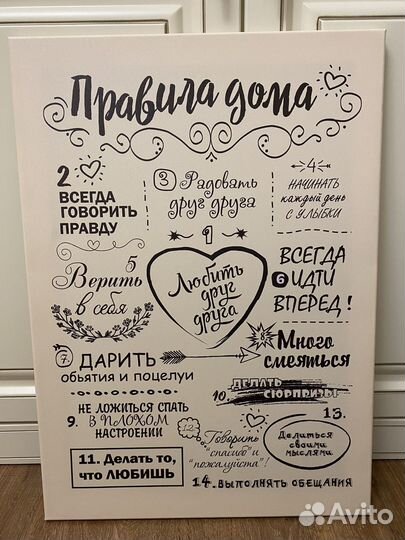 Правила дома
2 ВСЕГДА
ГОВОРИТЬ
ПРАВДУ
3 Радовать
друг друга
4
НАЧИНАТЬ
каждый день
С УЛЫБКИ
1
Любить
друг
друга
5
Верить
в себя
ВСЕГДА
6 ИДТИ
ВПЕРЕД!
7. ДАРИТЬ
обьятия и поцелуи
8 Много
смеяться
9. НЕ ЛОЖИТЬСЯ СПАТЬ
В ПЛОХОМ
НАСТРОЕНИИ
10. ДЕЛАТЬ
СЮРПРИЗЫ
11. Делать то,
что ЛЮБИШЬ
12. Говорить
"спасибо" и
"пожалуйста"!
13.
Делиться
своими
мыслями
14. ВЫПОЛНЯТЬ ОБЕЩАНИЯ
Avito